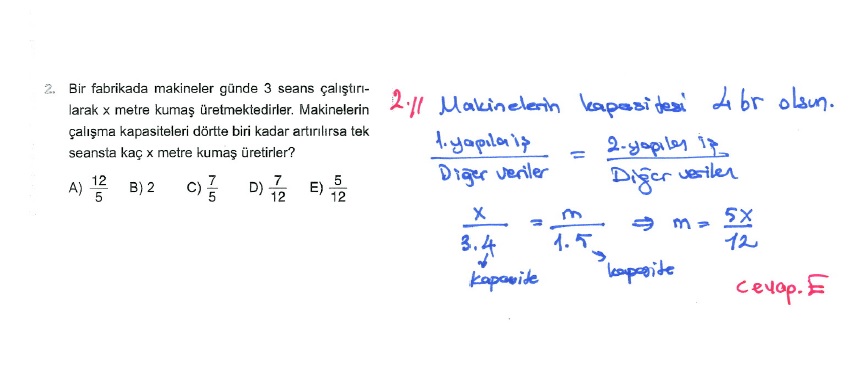 2. Bir fabrikada makineler günde 3 seans çalıştırı-
larak x metre kumaş üretmektedirler. Makinelerin
çalışma kapasiteleri dörtte biri kadar artırılırsa tek
seansta kaç x metre kumaş üretirler?
A) 12/5 B) 2 C) 7/5 D) 7/12 E) 5/12
2.// Makinelerin kapasitesi 4 br olsun.
1. yapılan iş / Diğer veriler = 2. yapılan iş / Diğer veriler
x / 3.4 = m / 1.5 ⇒ m = 5x / 12
kapasite kapasite
Cevap. E